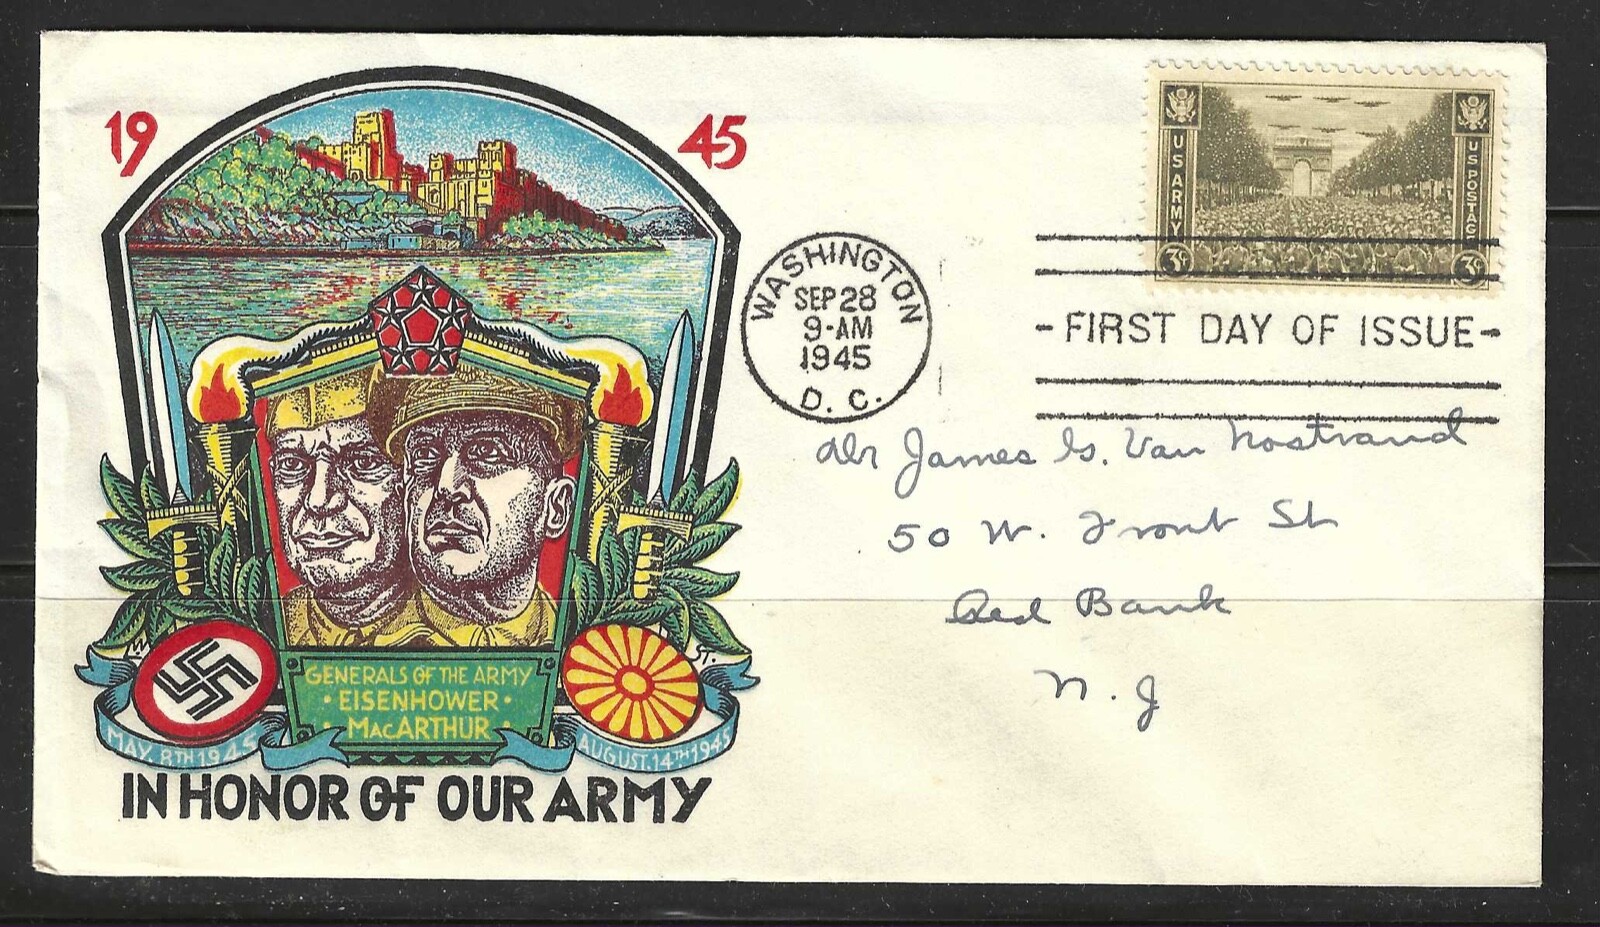 19 45
GENERALS OF THE ARMY
· EISENHOWER ·
· MACARTHUR ·
MAY. 8TH 1945
AUGUST. 14TH 1945
IN HONOR OF OUR ARMY
W. ST.
WASHINGTON
SEP 28
9-AM
1945
D. C.
US ARMY
US POSTAGE
3¢ 3¢
- FIRST DAY OF ISSUE -
Dr James G. Van Nostrand
50 W. Front St
Red Bank
N. J